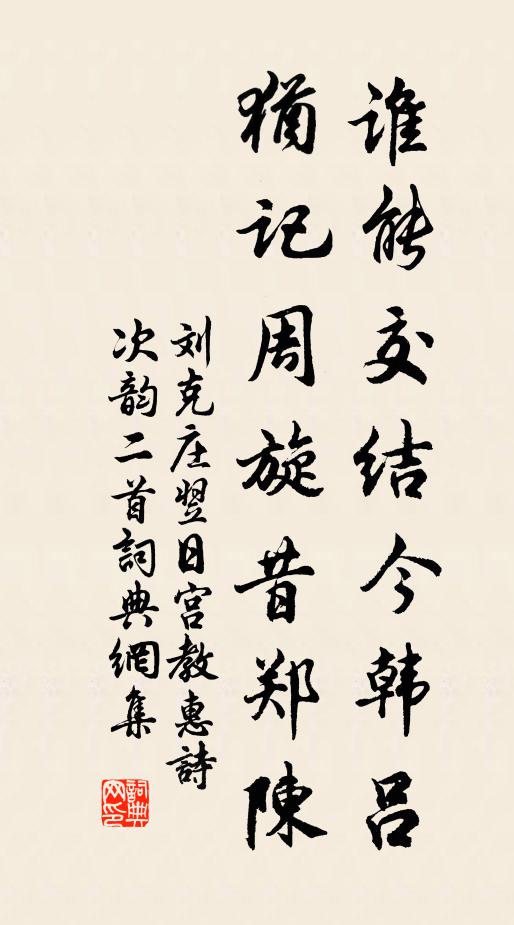 谁能交结今韩吕
犹记周旋昔郑陳
刘克庄翌日宫教惠詩
次韵二首詞典網集
詞典
网印